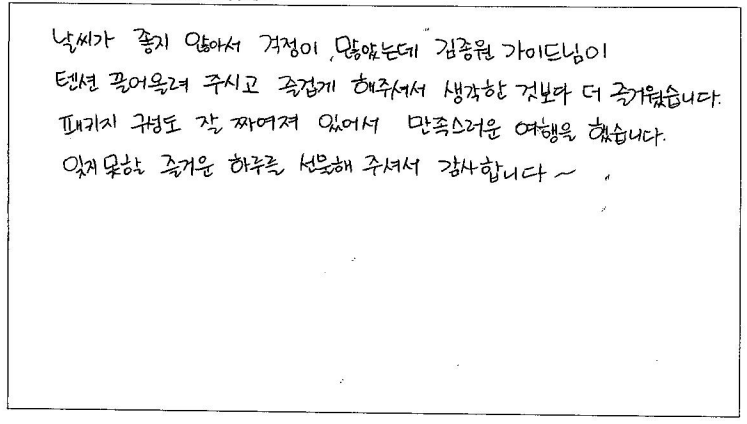 날씨가 좋지 않아서 걱정이 많았는데 김종원 가이드님이
텐션 끌어올려 주시고 즐겁게 해주셔서 생각한 것보다 더 즐거웠습니다.
패키지 구성도 잘 짜여져 있어서 만족스러운 여행을 했습니다.
잊지못할 즐거운 하루를 선물해 주셔서 감사합니다~